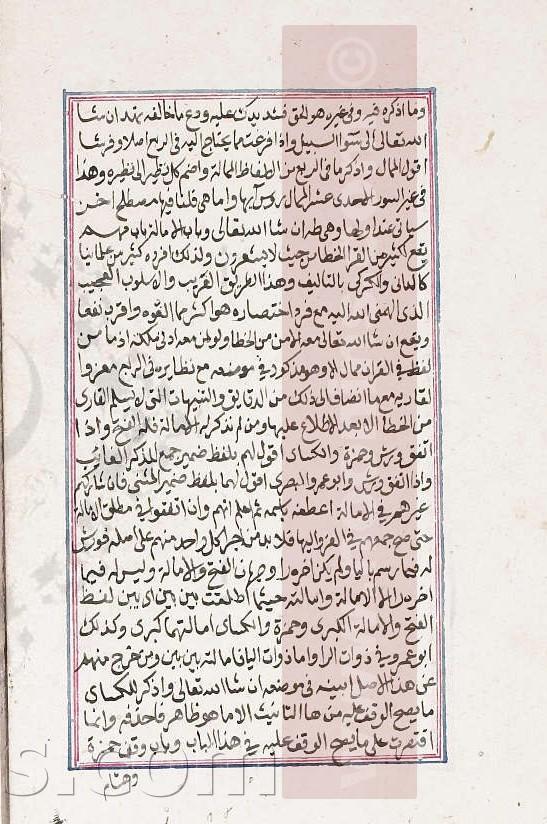 وما اذكره فيه وفي غيره هو الحق فشد يدك عليه ودع ما خالفه تهتد ان شا
الله تعالى الى سوا السبيل واذا فرغت مما يحتاج اليه في الربع اصلا وفرشا
اقول الممال واذكر ما في الربع من الالفاظ الممالة واضم كل نظير الى نظيره وهذا
في غير السور الاحدى عشر الممال روس آيها واما هي فلنا فيها مصطلح اخر
سياتي عند اولها وهي طه ان شا الله تعالى وباب الامالة باب مهم
يقع اكثر من القرا الخطا من حيث لا يشعرون ولذلك افرده كثير من علمائنا
كالداني والكركي بالتاليف وهذا الطريق القريب والاسلوب العجيب
الذي الهمني الله اليه مع فرط اختصاره هو اكثر مما الفوه واقرب نفعا
ويقع ان شا الله تعالى معه الامن من الخطا ولو لمن معه ادنى ملكة اذ ما من
لفظ في القران ممال الا وهو مذكور في موضعه مع نظايره في الربع معزوا
لقاريه مع ما انضاف الى ذلك من الدقايق والتنبيهات التي لا يسلم القاري
من الخطا الا بعد الاطلاع عليها ومن لم نذكر له الامالة فله الفتح واذا
اتفق ورش وحمزة والكساي اقول لهم بلفظ ضمير جمع المذكر الغايب
واذا اتفق ورش وابو عمرو البصري اقول لهما بلفظ ضمير المثنى فان شاركهم
غيرهم في الامالة اعطفه باسمه ثم اعلم انهم وان اتفقوا في مطلق الامالة
حتى صح جمعهم في العزو اليها فلا بد من اجرا كل واحد منهم على اصله فورش
له فيما رسم بالياء ولم يكن اخره را وجهان الفتح والامالة وليس له فيما
اخره را الا الامالة وامالته حيثما اطلقت بين بين اي بين لفظ
الفتح والامالة الكبرى وحمزة والكساي امالتهما كبرى وكذلك
ابو عمرو في ذوات الرا واما ذوات اليا فامالته بين بين ومن خرج منهم
عن هذا الاصل ابينه في موضعه ان شا الله تعالى واذكر للكساي
ما يصح الوقف عليه من ها التانيث الا ما هو ظاهر فاحذفه وانما
اقتصرت على ما يصح الوقف عليه في هذا الباب وباب وقف حمزة
وهشام
s.com